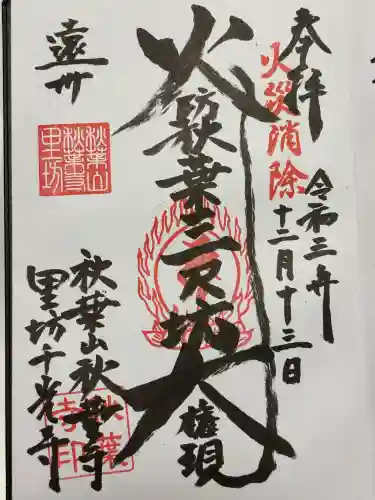 奉拝
火災消除
令和三年
十二月十三日
火防
秋葉三尺坊
大権現
遠州
秋葉山
秋葉寺
里坊
秋葉山秋葉寺
里坊千光寺
秋葉
寺印